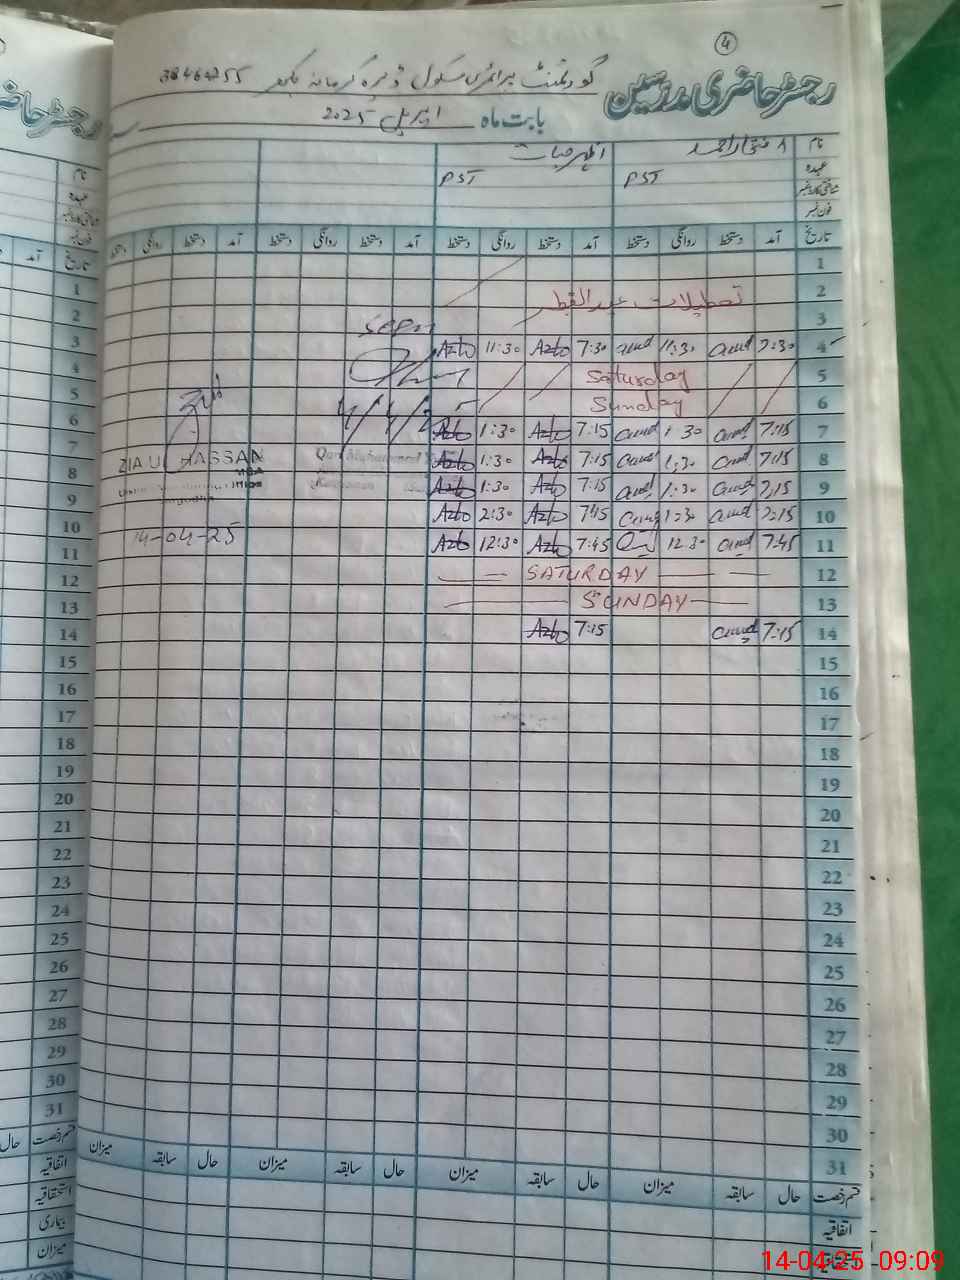 4
رجسٹر حاضری مدرسین گورنمنٹ پرائمری سکول ڈیرہ
بابت ماہ اپریل 2025
نام افتخار احمد اظہر حیات
عہدہ PST PST
فون نمبر
تاریخ آمد دستخط روانگی دستخط آمد دستخط روانگی دستخط آمد دستخط روانگی دستخط آمد دستخط روانگی دستخط
1
2 تعطیلات عیدالفطر
3
Seen
4 7:30 amd 11:30 amd 7:30 Azto 11:30 Azto
5 Saturday
6 Sunday
7 7:15 amd 1:30 amd 7:15 Azto 1:30 Azto
8 7:15 amd 1:30 amd 7:15 Azto 1:30 Azto
ZIA UL HASSAN
9 7:15 amd 1:30 amd 7:15 Azto 1:30 Azto
10 7:15 amd 1:30 amd 7:45 Azto 2:30 Azto
11 7:45 amd 12:30 7:45 Azto 12:30 Azto
14-04-25
12 SATURDAY
13 SUNDAY
14 7:15 amd 7:15 Azto
15
16
17
18
19
20
21
22
23
24
25
26
27
28
29
30
31
قسم رخصت حال سابقہ میزان حال سابقہ میزان حال سابقہ میزان حال سابقہ میزان
اتفاقیہ
استحقاقیہ
رجسٹر حاضری
نام
عہدہ
فون نمبر
تاریخ آمد
1
2
3
4
5
6
7
8
9
10
11
12
13
14
15
16
17
18
19
20
21
22
23
24
25
26
27
28
29
30
31
قسم رخصت حال
اتفاقیہ
استحقاقیہ
بیماری
میزان
14-04-25 09:09